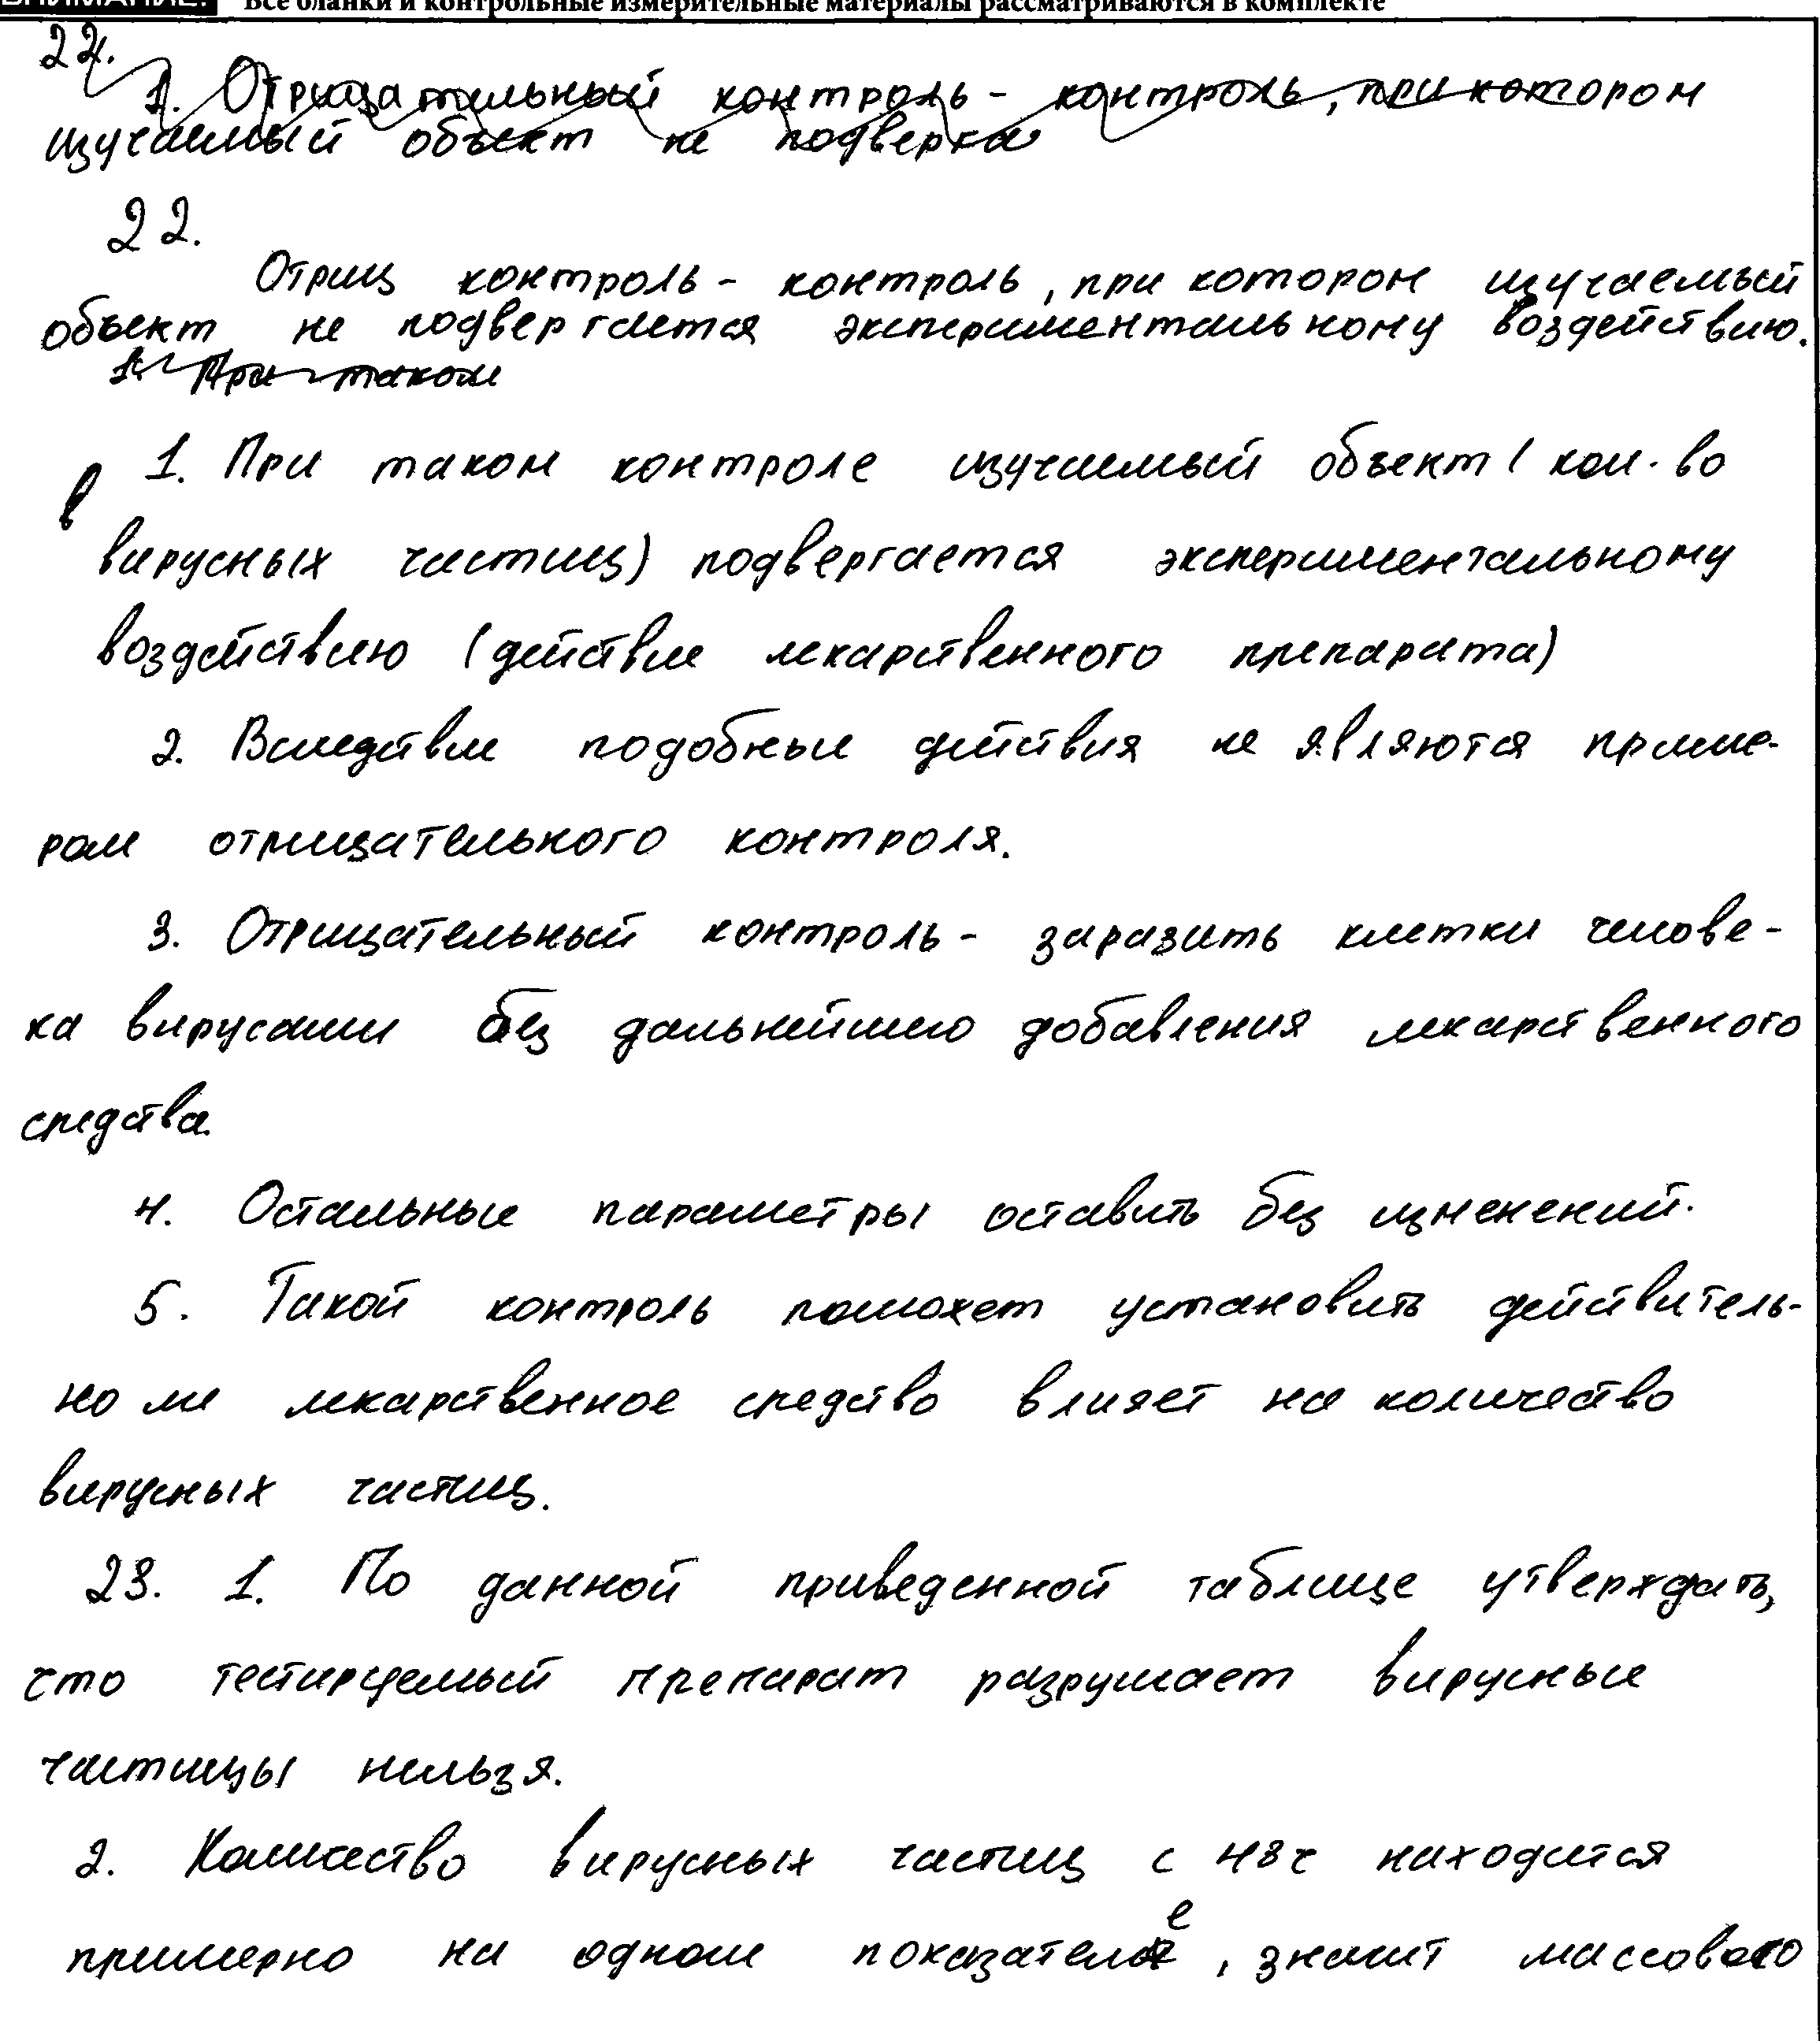 ВНИМАНИЕ! Все бланки и контрольные измерительные материалы рассматриваются в комплекте
22.
1. Отрицательный контроль - контроль, при котором
изучаемый объект не подверга
22.
Отриц контроль - контроль, при котором изучаемый
объект не подвергается экспериментальному воздействию.
1. При таком
1. При таком контроле изучаемый объект (кол-во
вирусных частиц) подвергается экспериментальному
воздействию (действие лекарственного препарата)
2. Вследствие подобные действия не являются приме-
ром отрицательного контроля.
3. Отрицательный контроль - заразить клетки челове-
ка вирусами без дальнейшего добавления лекарственного
средства.
4. Остальные параметры оставить без изменений.
5. Такой контроль поможет установить действитель-
но ли лекарственное средство влияет на количество
вирусных частиц.
23. 1. По данной приведенной таблице утверждать,
что тестируемый препарат разрушает вирусные
частицы нельзя.
2. Количество вирусных частиц с 48ч находится
примерно на одном показателе, значит массового